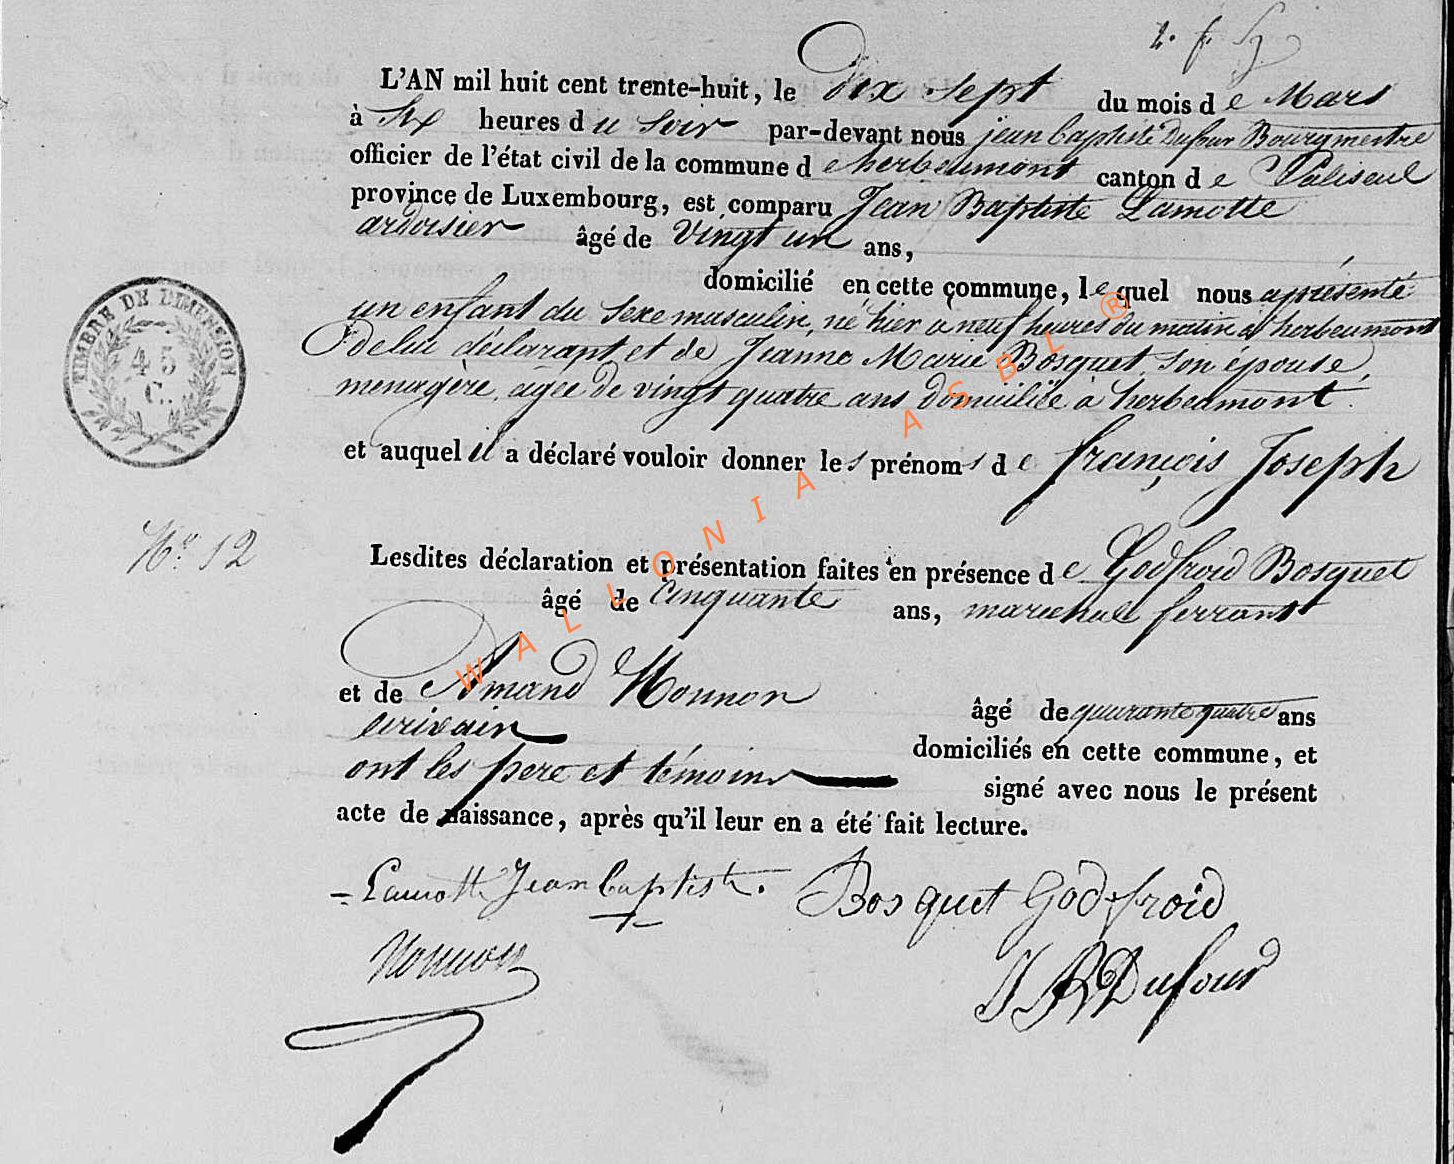 L'AN mil huit cent trente-huit, le dix sept du mois de Mars
à six heures du soir par-devant nous jean baptiste dufour Bourgmestre
officier de l'état civil de la commune de herbeumont canton de Paliseul
province de Luxembourg, est comparu Jean Baptiste Lamotte
ardoisier âgé de vingt un ans,
domicilié en cette commune, lequel nous a présenté
un enfant du sexe masculin, né hier à neuf heures du matin à herbeumont
de lui déclarant et de Jeanne Marie Bosquet, son épouse,
menagère, agée de vingt quatre ans domiciliée à herbeumont.
et auquel il a déclaré vouloir donner les prénoms de françois Joseph
TIMBRE DE DIMENSION
45
C.
No. 12
Lesdites déclaration et présentation faites en présence de Godfroid Bosquet
âgé de Cinquante ans, marechale ferrant
et de Amand Nonnon âgé de quarante quatre ans
ecrivain domiciliés en cette commune, et
ont les pere et témoins signé avec nous le présent
acte de naissance, après qu'il leur en a été fait lecture.
Lamotte Jean baptiste. Bosquet Godefroid
Nonnon JBDufour
WALLONIA ASBL ®